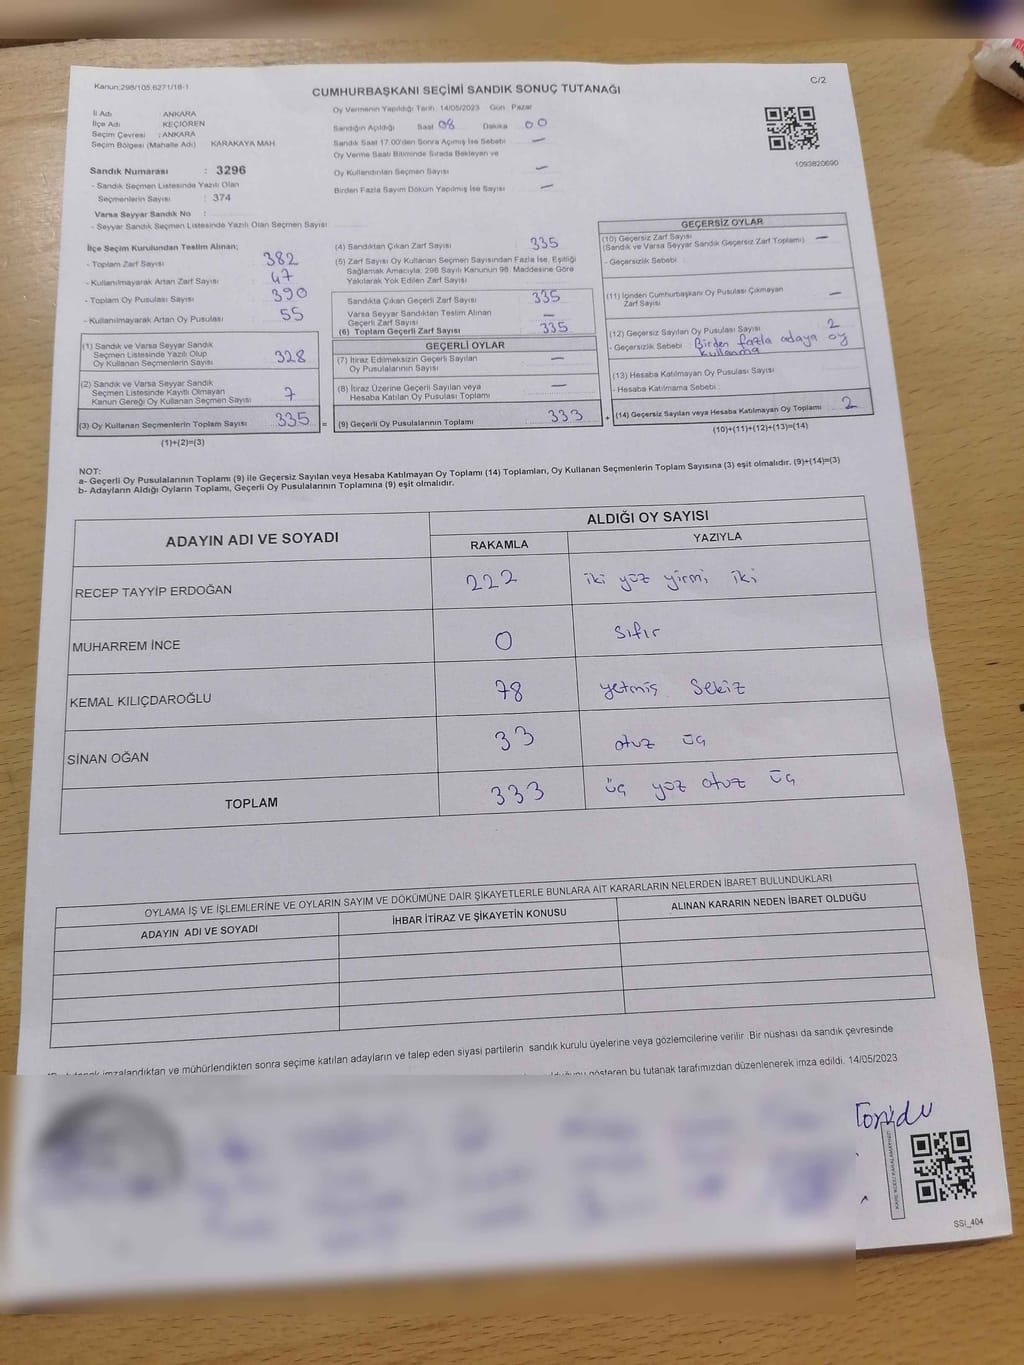 Kanun:298/105.6271/18-1
C/2
CUMHURBAŞKANI SEÇİMİ SANDIK SONUÇ TUTANAĞI
İl Adı : ANKARA
İlçe Adı : KEÇİÖREN
Seçim Çevresi : ANKARA
Seçim Bölgesi (Mahalle Adı) KARAKAYA MAH
Sandık Numarası : 3296
- Sandık Seçmen Listesinde Yazılı Olan
Seçmenlerin Sayısı : 374
Varsa Seyyar Sandık No :
- Seyyar Sandık Seçmen Listesinde Yazılı Olan Seçmen Sayısı :
Oy Vermenin Yapıldığı Tarih : 14/05/2023 Gün Pazar
Sandığın Açıldığı Saat 08 Dakika 00
Sandık Saat 17.00'den Sonra Açımış İse Sebebi —
Oy Verme Saati Bitiminde Sırada Bekleyen ve
Oy Kullandırılan Seçmen Sayısı —
Birden Fazla Sayım Döküm Yapılmış İse Sayısı —
1093820690
İlçe Seçim Kurulundan Teslim Alınan;
- Toplam Zarf Sayısı 382
- Kullanılmayarak Artan Zarf Sayısı 47
- Toplam Oy Pusulası Sayısı 390
- Kullanılmayarak Artan Oy Pusulası 55
(1) Sandık ve Varsa Seyyar Sandık
Seçmen Listesinde Yazılı Olup
Oy Kullanan Seçmenlerin Sayısı 328
(2) Sandık ve Varsa Seyyar Sandık
Seçmen Listesinde Kayıtlı Olmayan
Kanun Gereği Oy Kullanan Seçmen Sayısı 7
(3) Oy Kullanan Seçmenlerin Toplam Sayısı 335 =
(1)+(2)=(3)
(4) Sandıktan Çıkan Zarf Sayısı 335
(5) Zarf Sayısı Oy Kullanan Seçmen Sayısından Fazla İse, Eşitliği
Sağlamak Amacıyla; 298 Sayılı Kanunun 98. Maddesine Göre
Yakılarak Yok Edilen Zarf Sayısı
Sandıkta Çıkan Geçerli Zarf Sayısı 335
Varsa Seyyar Sandıktan Teslim Alınan
Geçerli Zarf Sayısı —
(6) Toplam Geçerli Zarf Sayısı 335
GEÇERLİ OYLAR
(7) İtiraz Edilmeksizin Geçerli Sayılan
Oy Pusulalarının Sayısı —
(8) İtiraz Üzerine Geçerli Sayılan veya
Hesaba Katılan Oy Pusulası Toplamı —
(9) Geçerli Oy Pusulalarının Toplamı 333 +
GEÇERSİZ OYLAR
(10) Geçersiz Zarf Sayısı
(Sandık ve Varsa Seyyar Sandık Geçersiz Zarf Toplamı) —
- Geçersizlik Sebebi :
(11) İçinden Cumhurbaşkanı Oy Pusulası Çıkmayan
Zarf Sayısı —
(12) Geçersiz Sayılan Oy Pusulası Sayısı 2
- Geçersizlik Sebebi : Birden fazla adaya oy
kullanma
(13) Hesaba Katılmayan Oy Pusulası Sayısı
- Hesaba Katılmama Sebebi :
(14) Geçersiz Sayılan veya Hesaba Katılmayan Oy Toplamı 2
(10)+(11)+(12)+(13)=(14)
NOT:
a- Geçerli Oy Pusulalarının Toplamı (9) ile Geçersiz Sayılan veya Hesaba Katılmayan Oy Toplamı (14) Toplamları, Oy Kullanan Seçmenlerin Toplam Sayısına (3) eşit olmalıdır. (9)+(14)=(3)
b- Adayların Aldığı Oyların Toplamı, Geçerli Oy Pusulalarının Toplamına (9) eşit olmalıdır.
ADAYIN ADI VE SOYADI
ALDIĞI OY SAYISI
RAKAMLA YAZIYLA
RECEP TAYYİP ERDOĞAN 222 iki yüz yirmi iki
MUHARREM İNCE 0 Sıfır
KEMAL KILIÇDAROĞLU 78 yetmiş Sekiz
SİNAN OĞAN 33 otuz üç
TOPLAM 333 üç yüz otuz üç
OYLAMA İŞ VE İŞLEMLERİNE VE OYLARIN SAYIM VE DÖKÜMÜNE DAİR ŞİKAYETLERLE BUNLARA AİT KARARLARIN NELERDEN İBARET BULUNDUKLARI
ADAYIN ADI VE SOYADI
İHBAR İTİRAZ VE ŞİKAYETİN KONUSU
ALINAN KARARIN NEDEN İBARET OLDUĞU
imzalandıktan ve mühürlendikten sonra seçime katılan adayların ve talep eden siyasi partilerin sandık kurulu üyelerine veya gözlemcilerine verilir Bir nüshası da sandık çevresinde
gösteren bu tutanak tarafımızdan düzenlenerek imza edildi. 14/05/2023
SSI_404